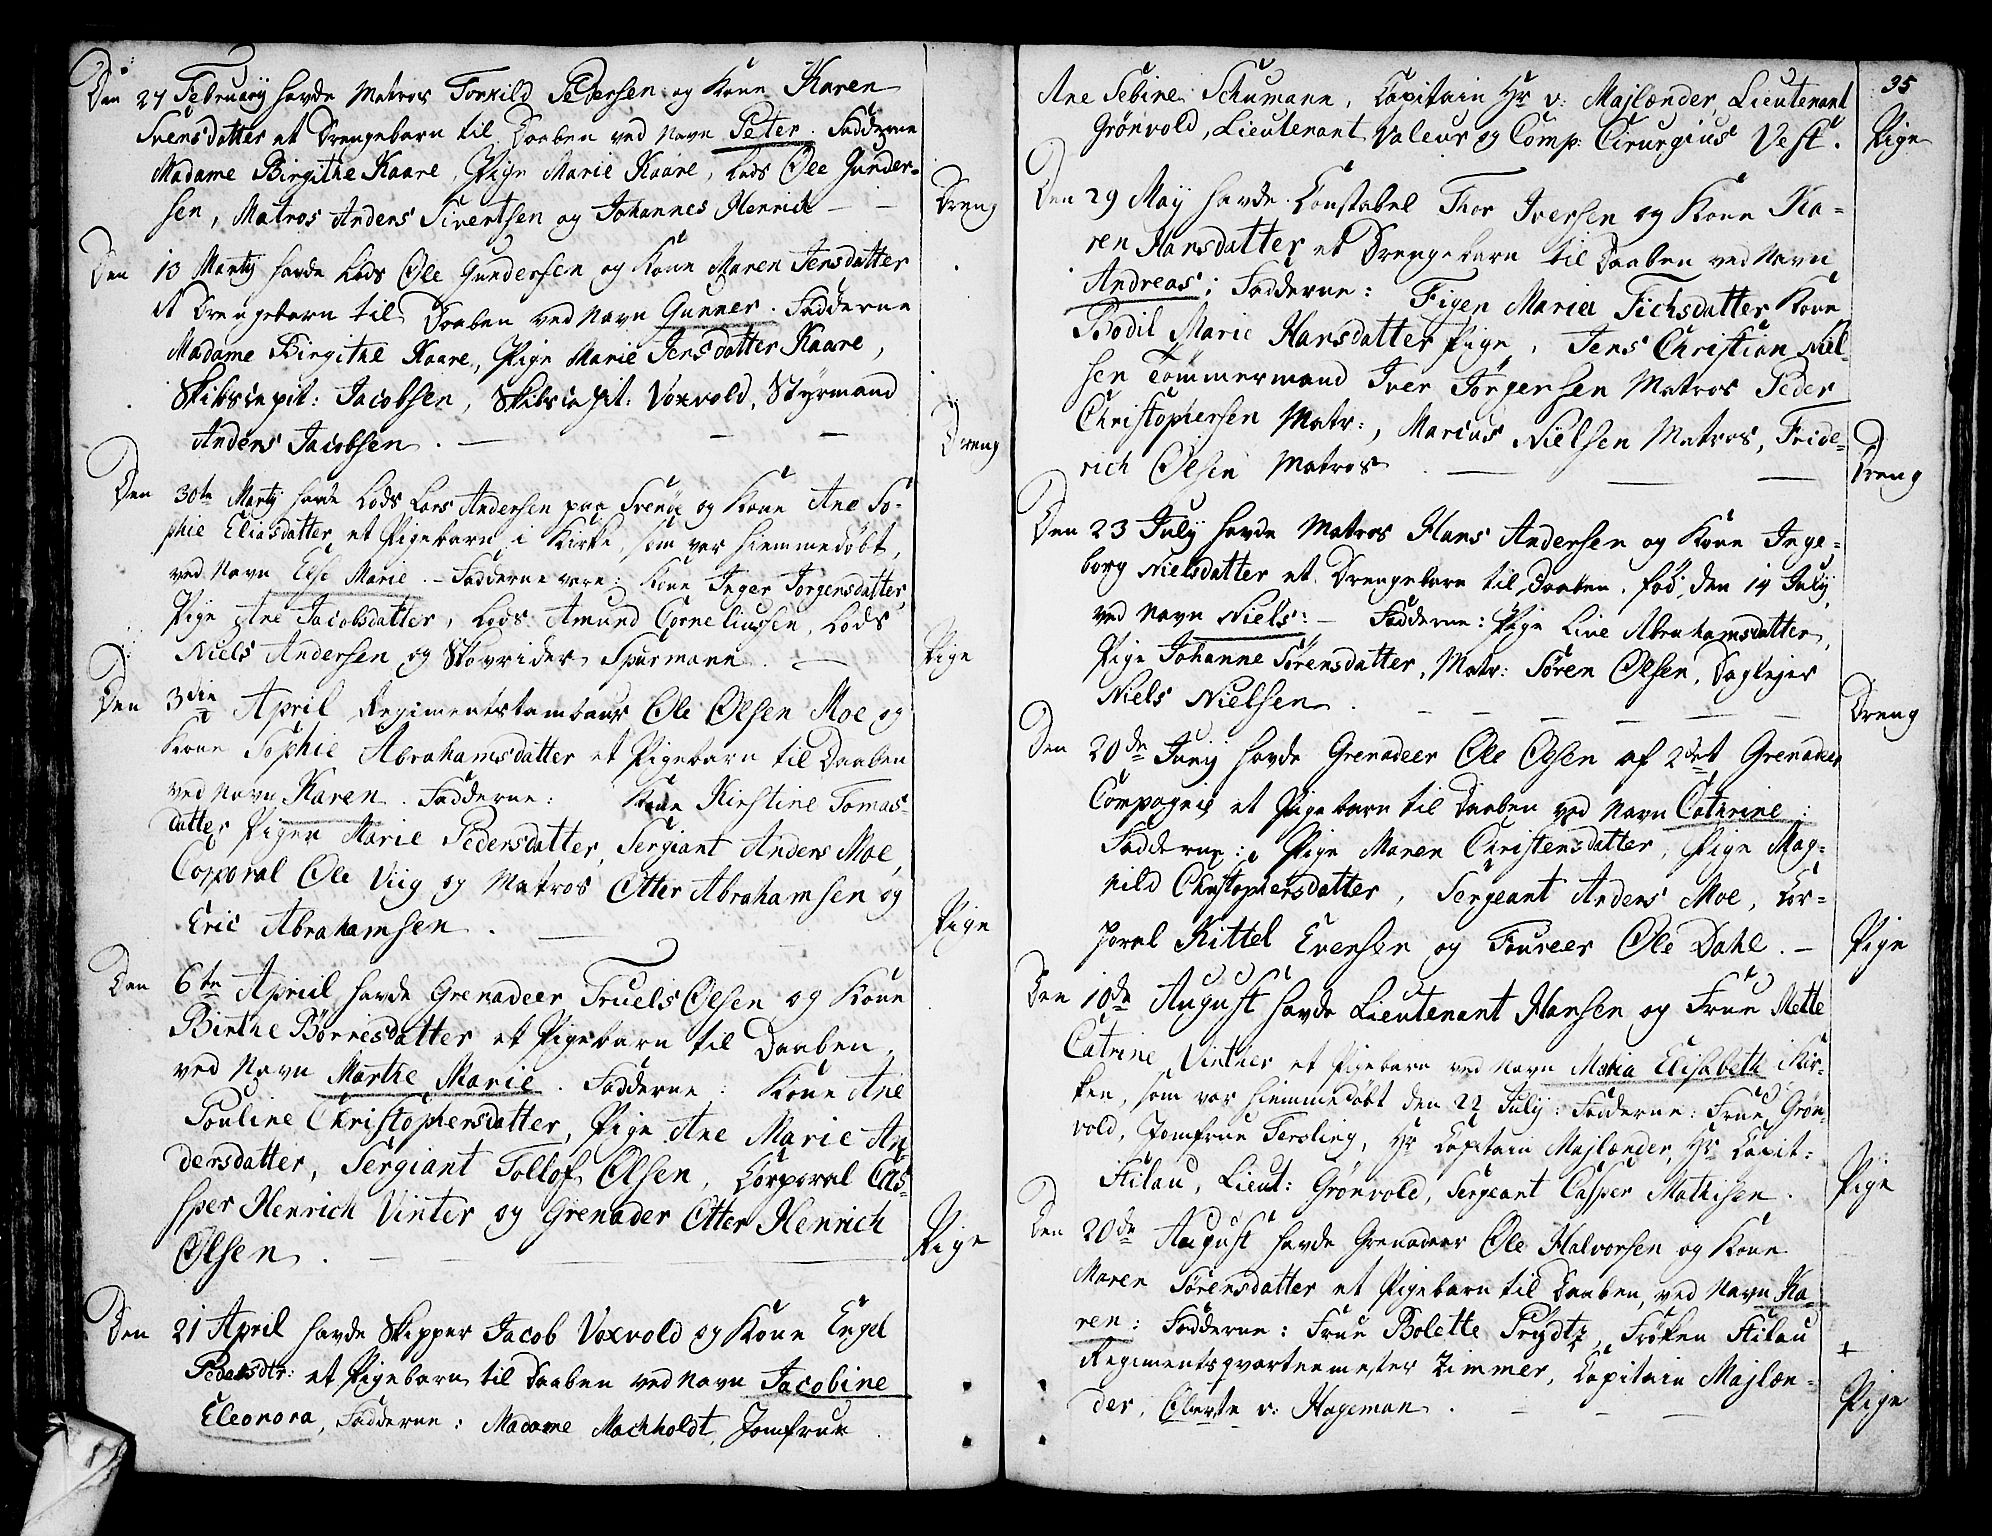 Den 27 February havde Matros Torkild Pedersen og Kone Karen
Svensdatter et Drengebarn til Daaben ved Navn Peter. Fadderne
Madame Birgithe Kaare, Pige Marie Kaare, Lods Ole Gunder-
sen, Matros Anders Sivertsen og Johannes Henrich — —
Dreng
Den 13 Martij havde Lods Ole Gundersen og Kone Maren Jensdatter
et Drengebarn til Daaben ved Navn Gunner. Fadderne
Madame Birgithe Kaare, Pige Marie Jensdatter Kaare,
Skibscapit: Jacobsen, Skibscapit: Voxvold, Styrmand
Anders Jacobsen. — — —
Dreng
Den 30te Martij havde Lods Lars Andersen paa og Kone Ane So-
phie Eliasdatter et Pigebarn i Kirke, som var hiemmedøbt,
ved Navn Else Marie. — Fadderne vare: Kone Inger Jørgensdatter,
Pige Ane Jacobsdatter, Lods Amund Corneliussen, Lods
Niels Andersen og Skovrider Spurmann. —
Pige
Den 3die April Regimentstambour Ole Olsen Moe og
Kone Sophie Abrahamsdatter et Pigebarn til Daaben
ved Navn Karen. Fadderne: Kone Kirstine Tomas-
datter Pigen Marie Pedersdatter, Sergiant Anders Moe,
Corporal Ole Viig og Matros Otter Abrahamsen og
Eric Abrahamsen. — —
Pige
Den 6te April havde Grenadeer Truels Olsen og Kone
Birthe Børresdatter et Pigebarn til Daaben
ved Navn Marthe Marie. Fadderne: Kone Ane
Pouline Christophersdatter, Pige Ane Marie An-
dersdatter, Sergiant Tollof Olsen, Corporal Cas-
per Henrich Vinter og Grenader Otter Henrich
Olsen. — —
Pige
Den 21 April havde Skipper Jacob Voxvold og Kone Engel
Pedersdtr: et Pigebarn til Daaben ved Navn Jacobine
Eleonora, Fadderne: Madame Machholdt, Jomfrue
35
Ane Sebine Schumann, Capitain Hr v: Majlænder, Lieutenant
Grönvold, Lieutenant Valeur og Comp: Cirurgius Vest.
Pige
Den 29 Maij havde Constabel Thor Iversen og Kone Ka-
ren Hansdatter et Drengebarn til Daaben ved Navn
Andreas; Fadderne: Figen Maria Fichsdatter Kone
Bodil Marie Hansdatter Pige, Jens Christian Niel-
sen Tömmermand Iver Jörgensen Matros Peder
Christophersen Matr:, Marius Nielsen Matros, Fride-
rich Olsen Matros. — — —
Dreng
Den 23 July havde Matros Hans Andersen og Kone Inge-
borg Nielsdatter et Drengebarn til Daaben, fød den 14 July,
ved Navn Niels: — Fadderne: Pige Line Abrahamsdatter,
Pige Johanne Sörensdatter, Matr: Sören Olsen, Daglejer
Niels Nielsen. — — — — —
Dreng
Den 20de Junij havde Grenadeer Ole Olsen af 2det Grenadeer
Compagnie et Pigebarn til Daaben ved Navn Cathrine:
Fadderne: Pige Maren Christensdatter, Pige Mag-
nild Christophersdatter, Sergeant Anders Moe, Cor-
poral Kittel Evensen og Foureer Ole Dahl. —
Pige
Den 10de August havde Lieutenant Hansen og Frue Mette
Catrine Vintner et Pigebarn ved Navn Maria Elisabeth i Kir-
ken, som var hiemmedøbt den 22 July: Fadderne: Frue Grön-
vold, Jomfrue Fersling, Hr Capitain Majlænder, Hr Capit:
Stilau, Lieut: Grönvold, Sergeant Casper Mathisen.
Pige
Den 20de August havde Grenadeer Ole Halvorsen og Kone
Maren Sörensdatter et Pigebarn til Daaben, ved Navn Ka-
ren: Fadderne: Frue Bolette Prydtz, Frøken Stilau
Regimentsqvarteermester Zimmer, Capitain Majlæn-
der, Oberste v: Hageman. — — —
+
Pige